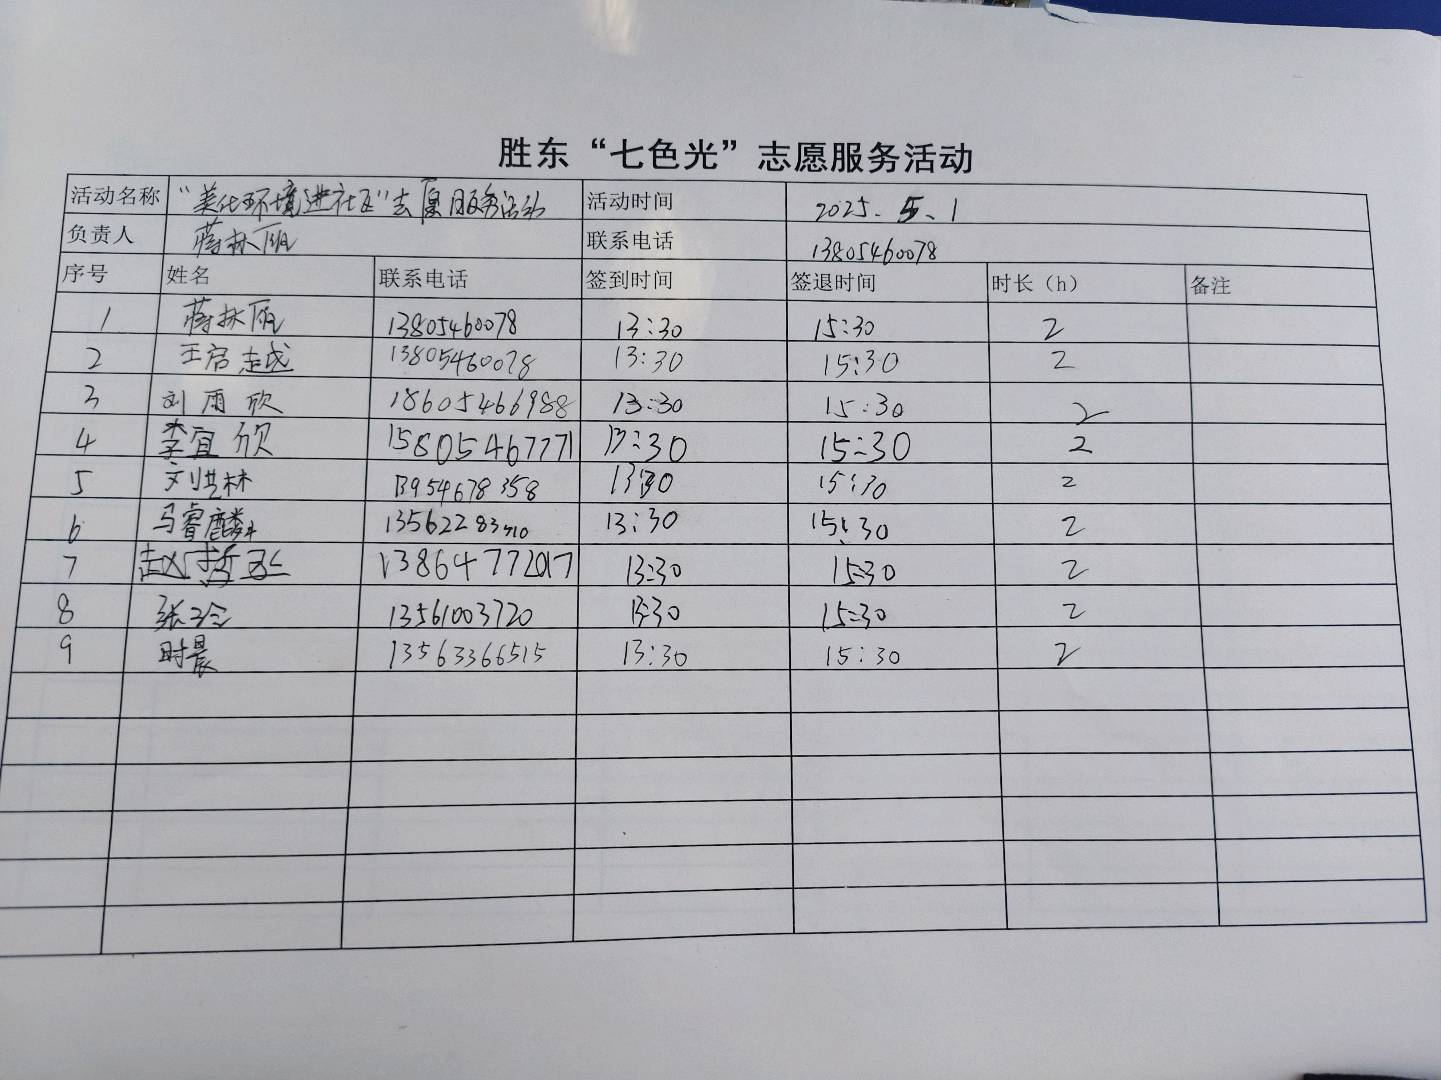 胜东“七色光”志愿服务活动
活动名称 “美化环境进社区”志愿服务活动 活动时间 2025.5.1
负责人 蒋林 联系电话 13805460078
序号 姓名 联系电话 签到时间 签退时间 时长（h） 备注
1 蒋林 13805460078 13:30 15:30 2
2 王启 13805460078 13:30 15:30 2
3 刘雨欣 18605466988 13:30 15:30 2
4 李宜欣 15805467771 13:30 15:30 2
5 刘洪林 13954678358 13:30 15:30 2
6 马睿麟 13562283710 13:30 15:30 2
7 赵哲 13864772017 13:30 15:30 2
8 张 13561003720 13:30 15:30 2
9 时晨 13563366515 13:30 15:30 2